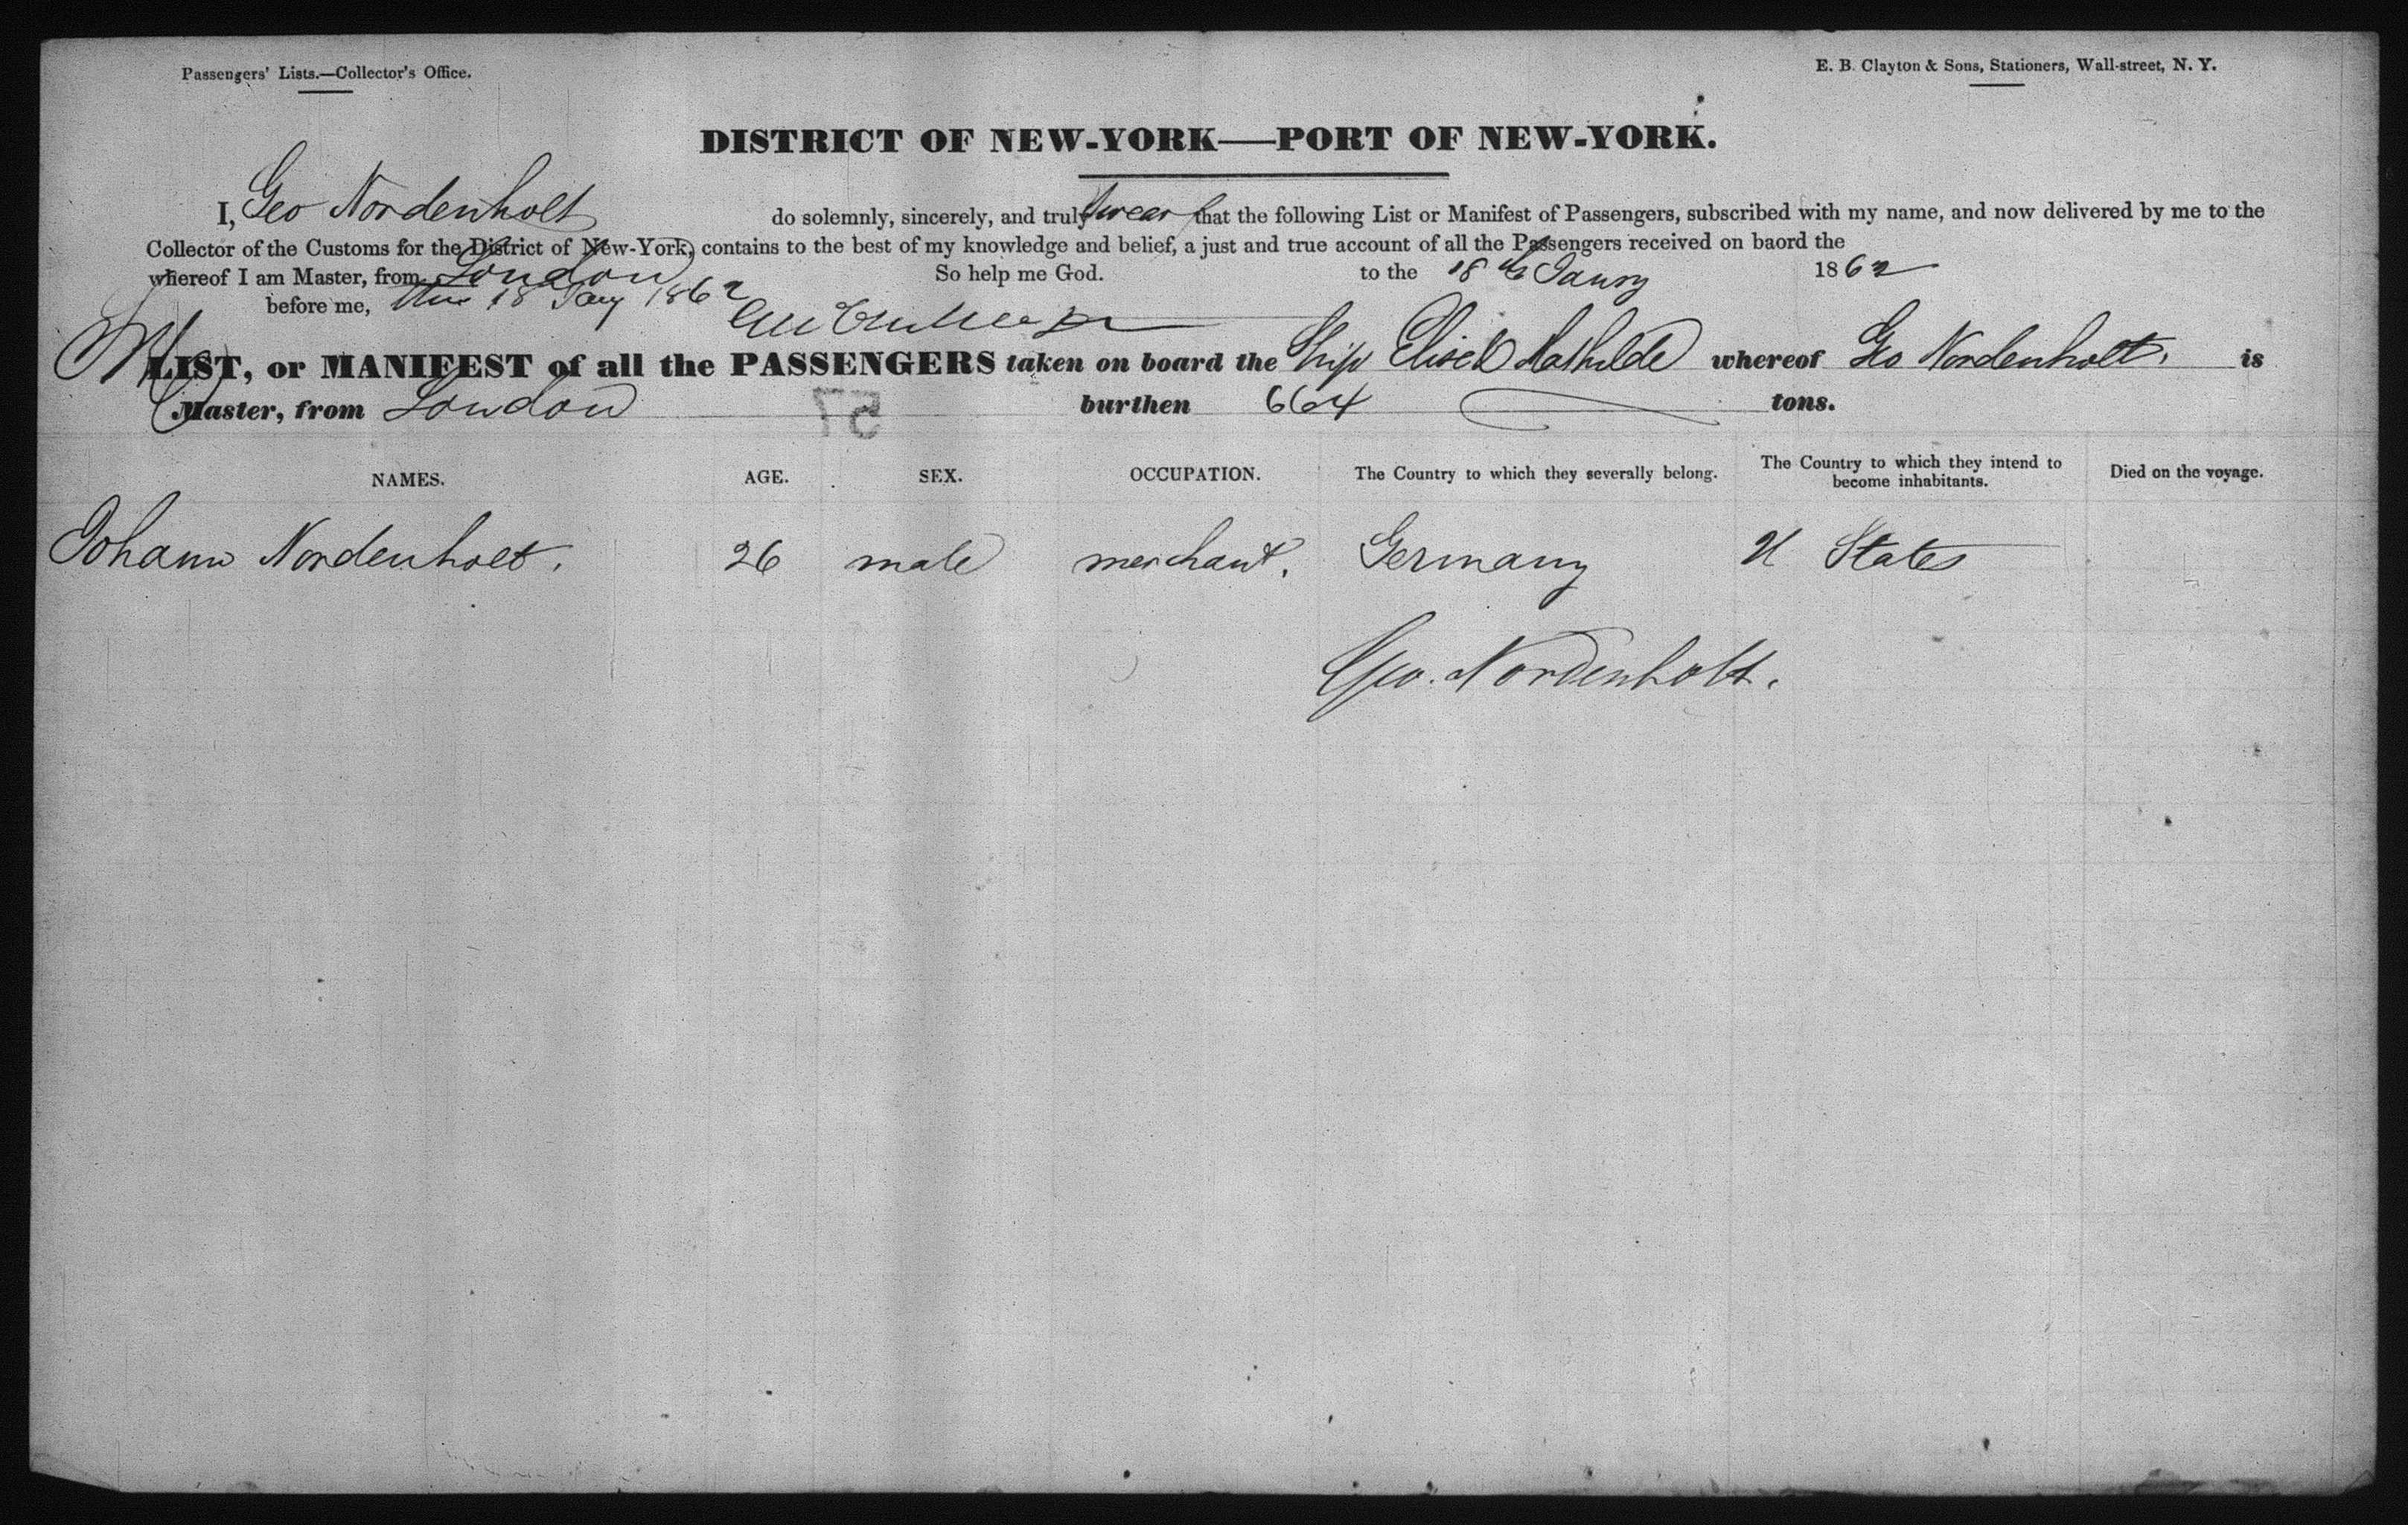 Passengers' Lists.—Collector's Office.
E. B. Clayton & Sons, Stationers, Wall-street, N. Y.
DISTRICT OF NEW-YORK—PORT OF NEW-YORK.
I, Geo Nordenholt do solemnly, sincerely, and truly swear that the following List or Manifest of Passengers, subscribed with my name, and now delivered by me to the
Collector of the Customs for the District of New-York, contains to the best of my knowledge and belief, a just and true account of all the Passengers received on baord the
whereof I am Master, from London So help me God. to the 18th Janry 1862
before me, this 18 Jany 1862
LIST, or MANIFEST of all the PASSENGERS taken on board the Ship Mathilde whereof Geo Nordenholt. is
Master, from London 57 burthen 664 tons.
NAMES. AGE. SEX. OCCUPATION. The Country to which they severally belong. The Country to which they intend to become inhabitants. Died on the voyage.
Johann Nordenholt. 26 male merchant. Germany U States
Geo. Nordenholt.